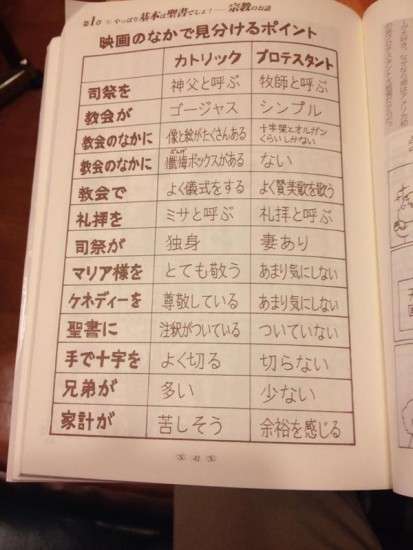 第1章 やっぱり基本は聖書でしょ！ 宗教のお話
映画のなかで見分けるポイント
カトリック プロテスタント
司祭を 神父と呼ぶ 牧師と呼ぶ
教会が ゴージャス シンプル
教会のなかに 像と絵がたくさんある 十字架とオルガン
くらいしかない
ざんげ
教会のなかに 懺悔ボックスがある ない
教会で よく儀式をする よく賛美歌を歌う
礼拝を ミサと呼ぶ 礼拝と呼ぶ
司祭が 独身 妻あり
マリア様を とても敬う あまり気にしない
ケネディーを 尊敬している あまり気にしない
聖書に 注釈がついている ついていない
手で十字を よく切る 切らない
兄弟が 多い 少ない
家計が 苦しそう 余裕を感じる